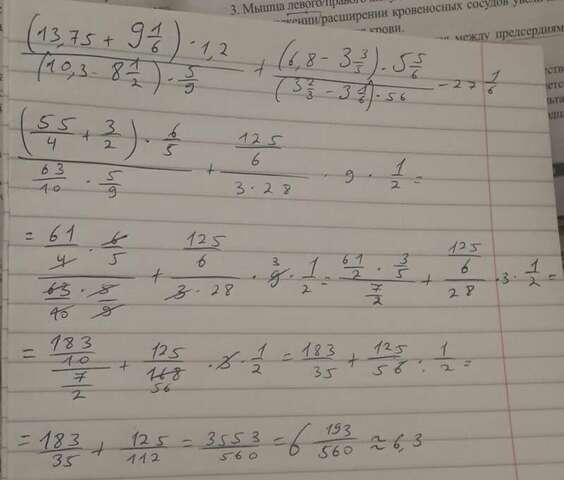 3. Мышца левого/правого
расширении кровеносных сосудов
крови.
между предсердиями
(13,75 + 9 1/6) · 1,2 / (10,3 - 8 1/2) · 5/9 + (6,8 - 3 3/5) · 5 5/6 / (3 2/3 - 3 1/6) · 56 - 27 1/6
(55/4 + 3/2) · 6/5 / 63/10 · 5/9 + 125/6 / 3 · 28 · 9 · 1/2 =
= 61/4 · 6/5 / 63/10 · 5/9 + 125/6 / 3 · 28 · 9 3 · 1/2 = 61/2 · 3/5 / 7/2 + 125/6 / 28 · 3 · 1/2 =
= 183/10 / 7/2 + 125/168 56 · 3 · 1/2 = 183/35 + 125/56 : 1/2 =
= 183/35 + 125/112 = 3553/560 = 6 193/560 ≈ 6,3